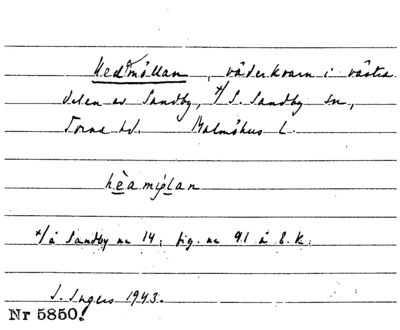 Hedmöllan, väderkvarn i västra
delen av Sandby, x/ S. Sandby sn,
Torna hd. Malmöhus L.
hèamiølan
x/ å Sandby nr 14; fig. nr 91 å E.K.
S. Ingers 1943.
Nr 5850.